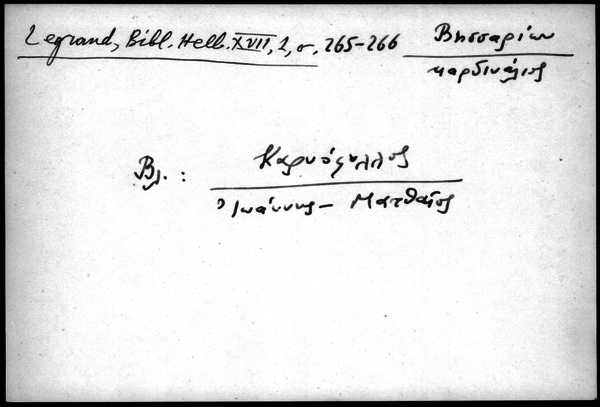 Legrand, Bibl. Hell. XVII, 2, σ. 265-266
Βησσαρίων
καρδινάλιος
Βλ. : Καρυόφυλλος
Ἰωάννης - Ματθαῖος